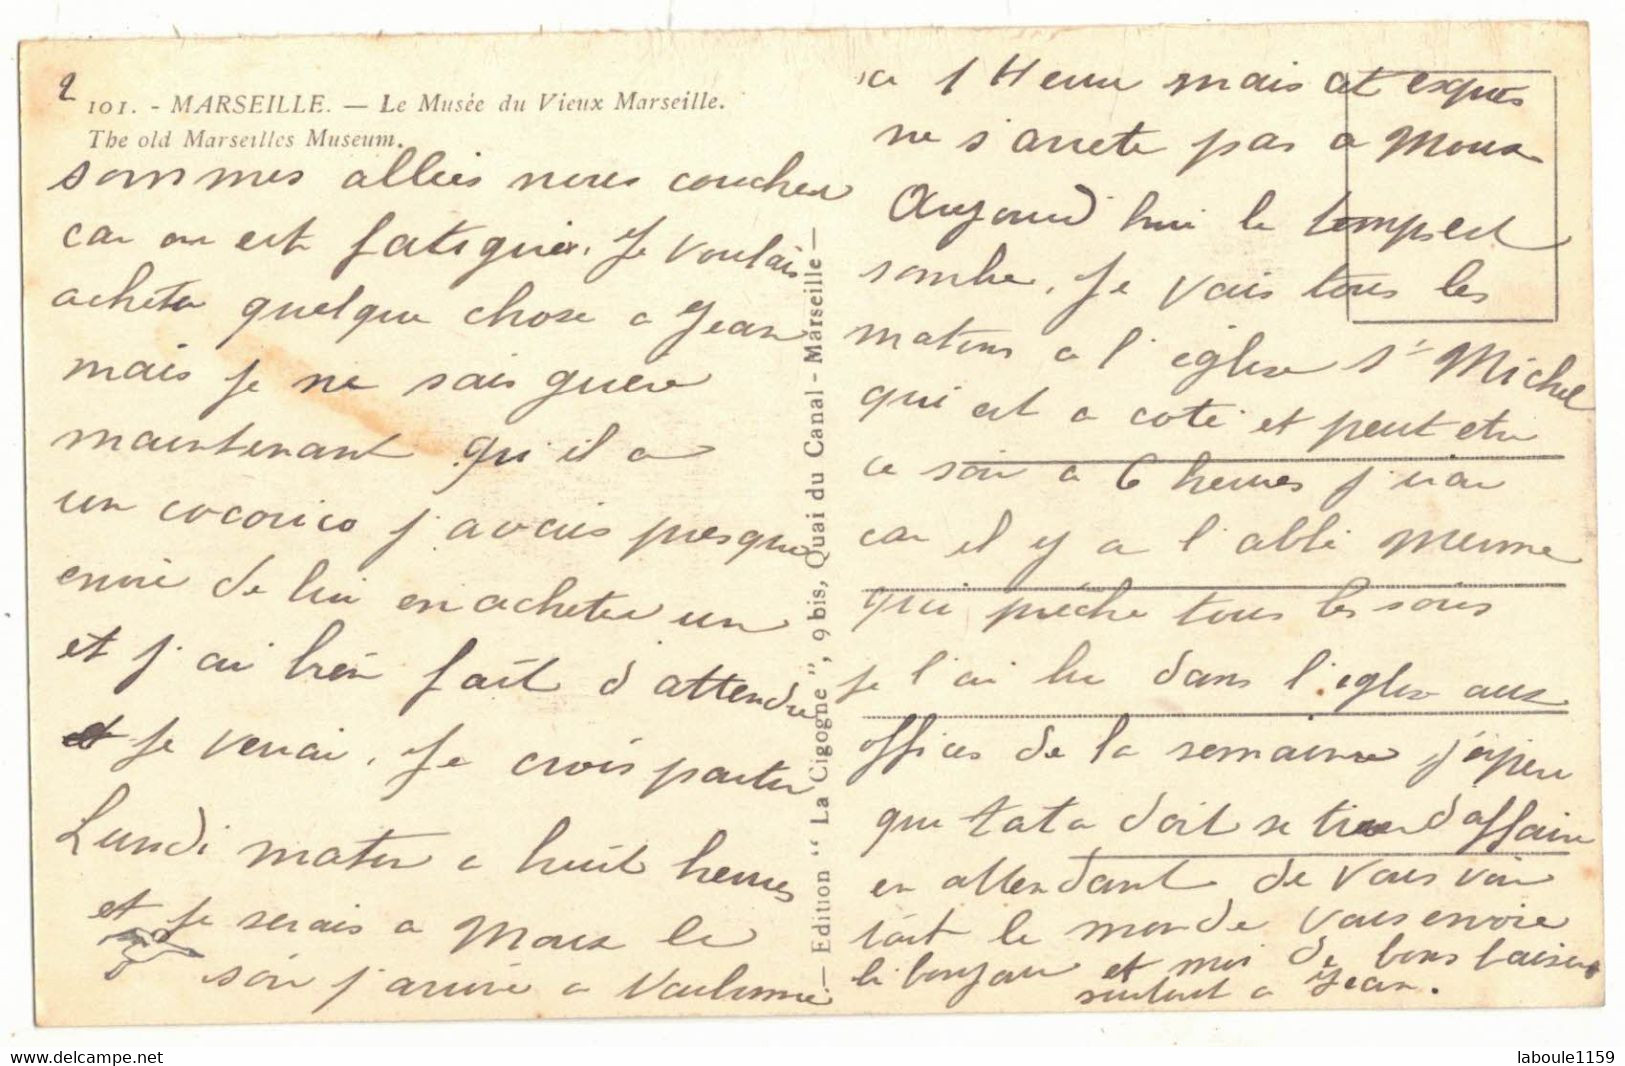 2
101. - MARSEILLE. — Le Musée du Vieux Marseille.
The old Marseilles Museum.
sommes allées nous coucher
car on est fatiguée. Je voulais
acheter quelque chose a Jean
mais je ne sais guere
maintenant qu'il a
un cocorico j'avais presque
envie de lui en acheter un
et j'ai bien fait d'attendre
et je verrai. Je crois partir
Lundi matin a huit heures
et je serais a Moux le
soir j'arrive a
— Edition "La Cigogne", 9 bis, Quai du Canal - Marseille —
a 1 Heure mais cet expres
ne s'arrete pas a Moux
Aujourd'hui le temps est
sombre. Je vais tous les
matins a l'eglise St Michel
qui est a coté et peut etre
ce soir a 6 heures j'irai
car il y a l'abbé
qui prêche tous les soirs
je l'ai lu dans l'eglise aux
offices de la semaine j'espere
que tata doit se tirer d'affaire
en attendant de vous voir
tout le monde vous envoie
le bonjour et moi de bons baisers
surtout a Jean.
laboule1159